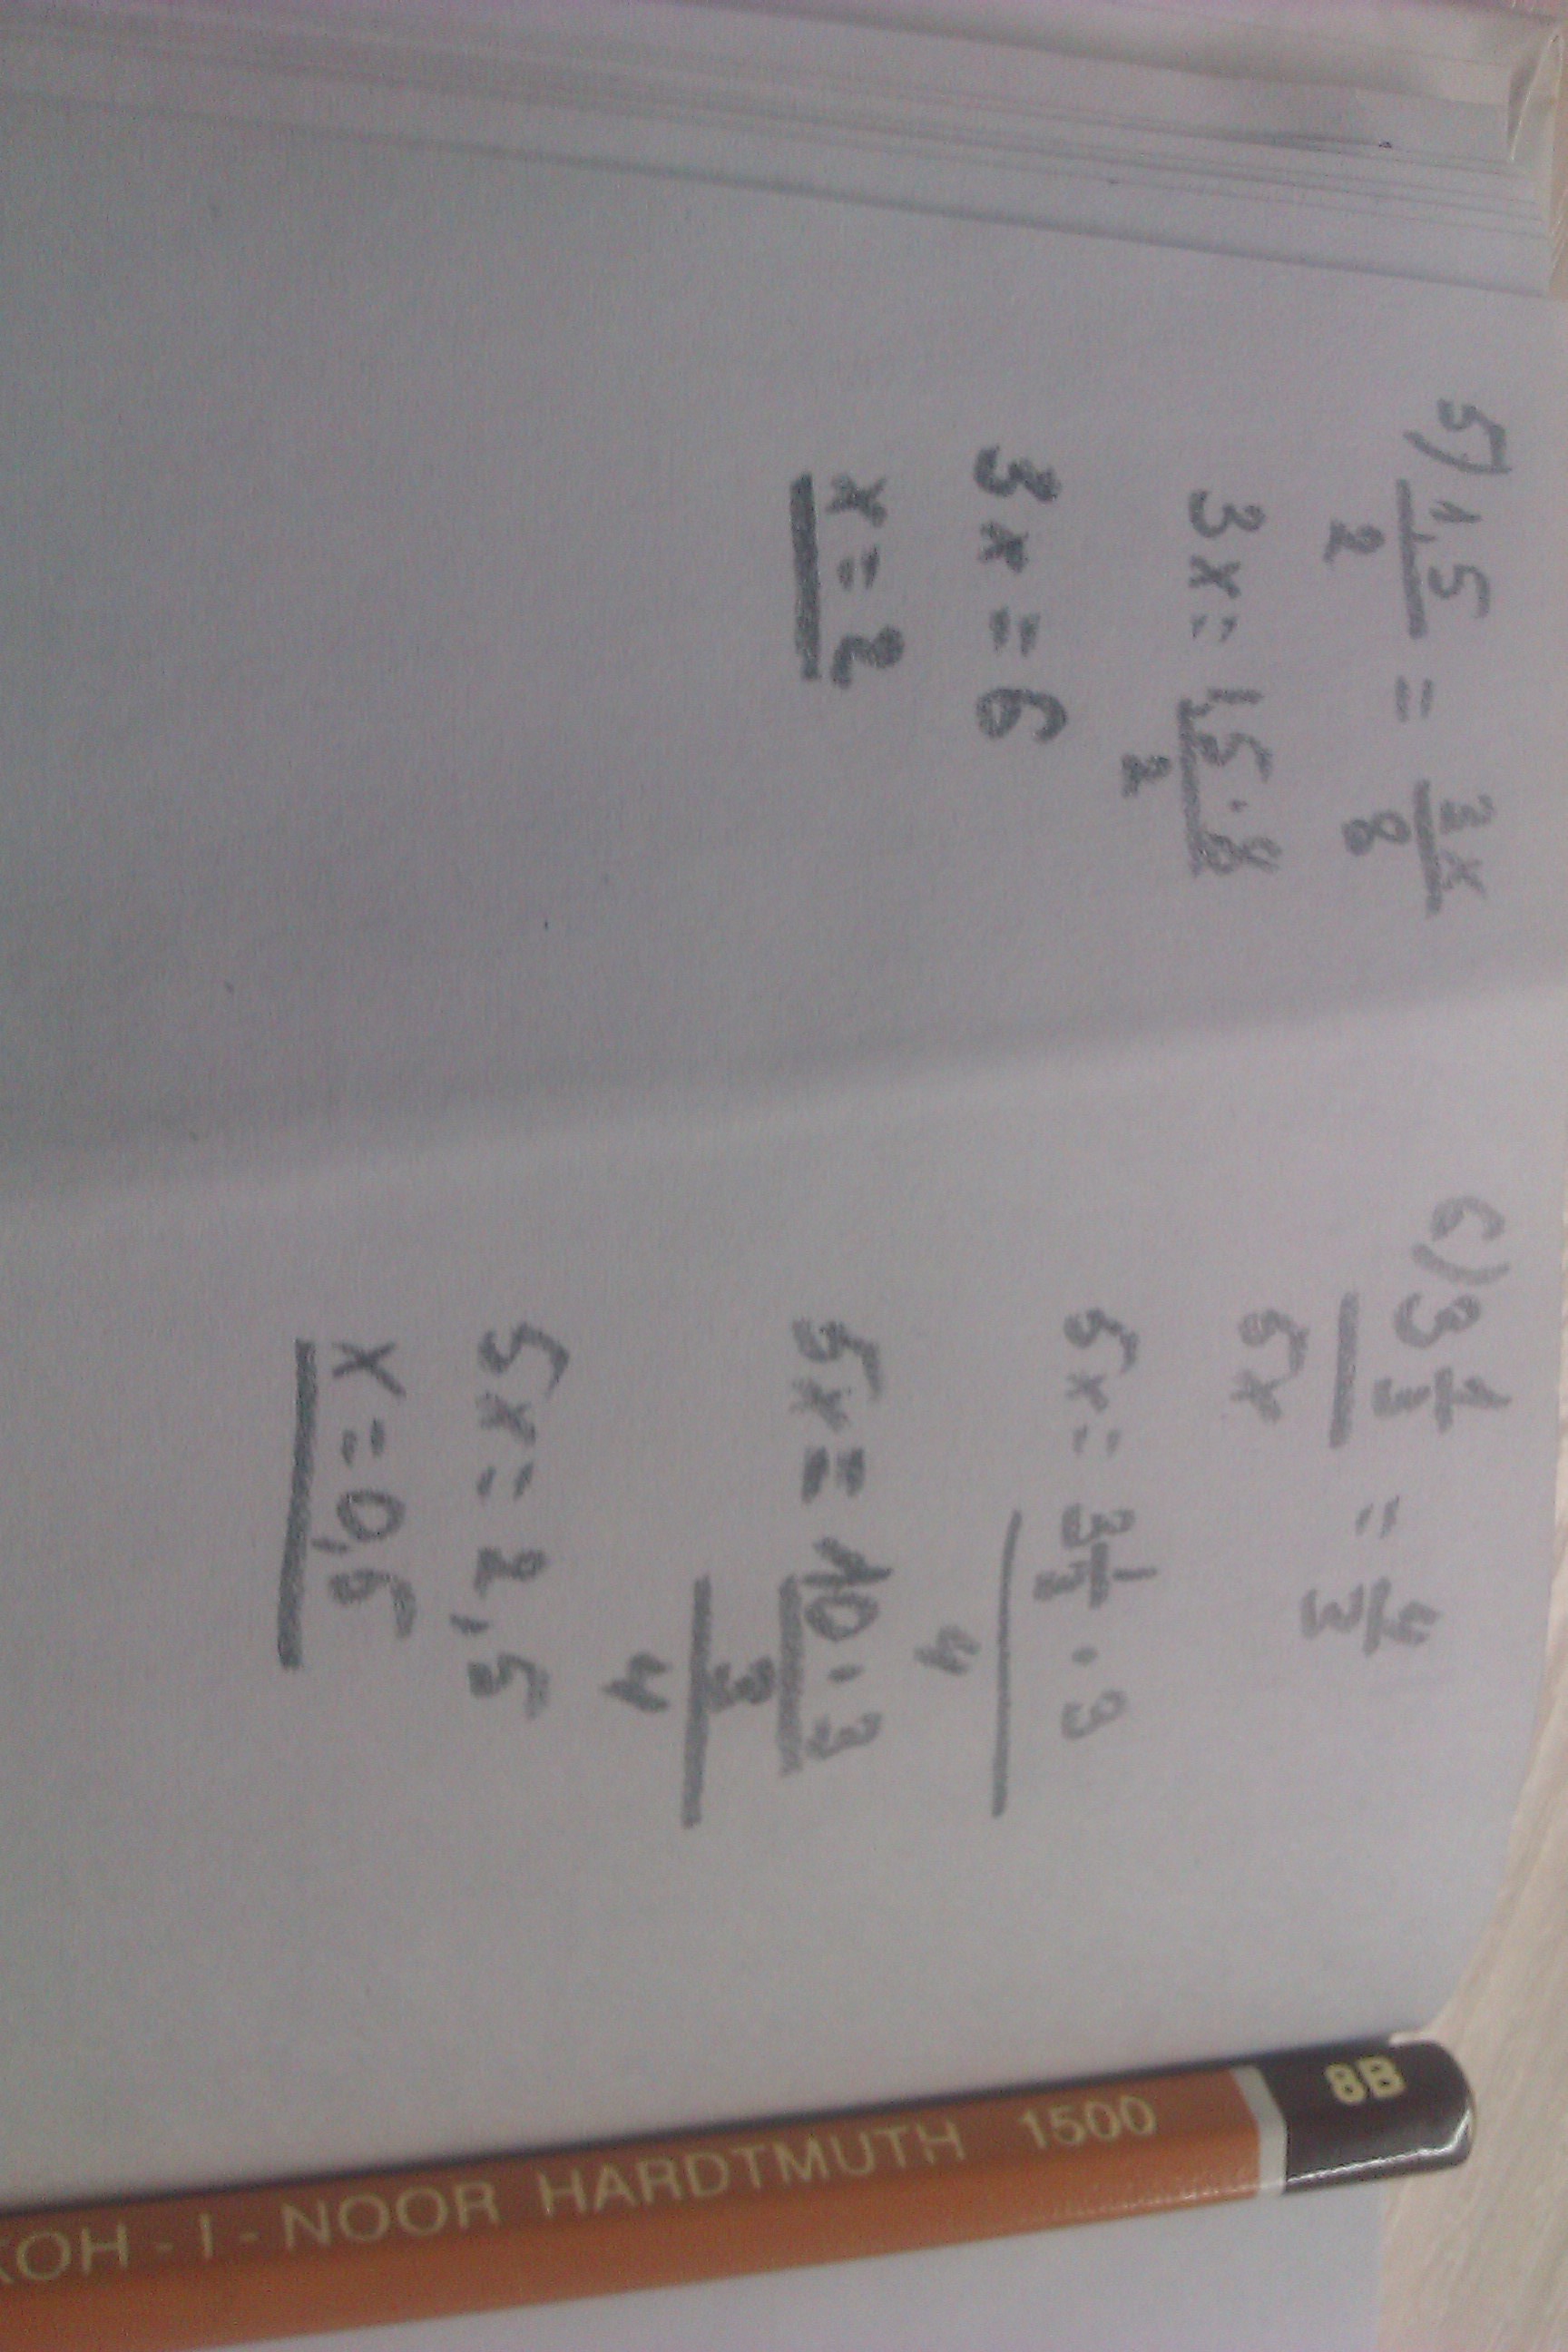 5) 1,5/2 = 3x/8
3x = 1,5·8/2
3x = 6
x = 2
6) 3 1/3 / 5x = 4/3
5x = 3 1/3 · 3 / 4
5x = 10·3/3 / 4
5x = 2,5
x = 0,5
KOH-I-NOOR HARDTMUTH 1500 8B